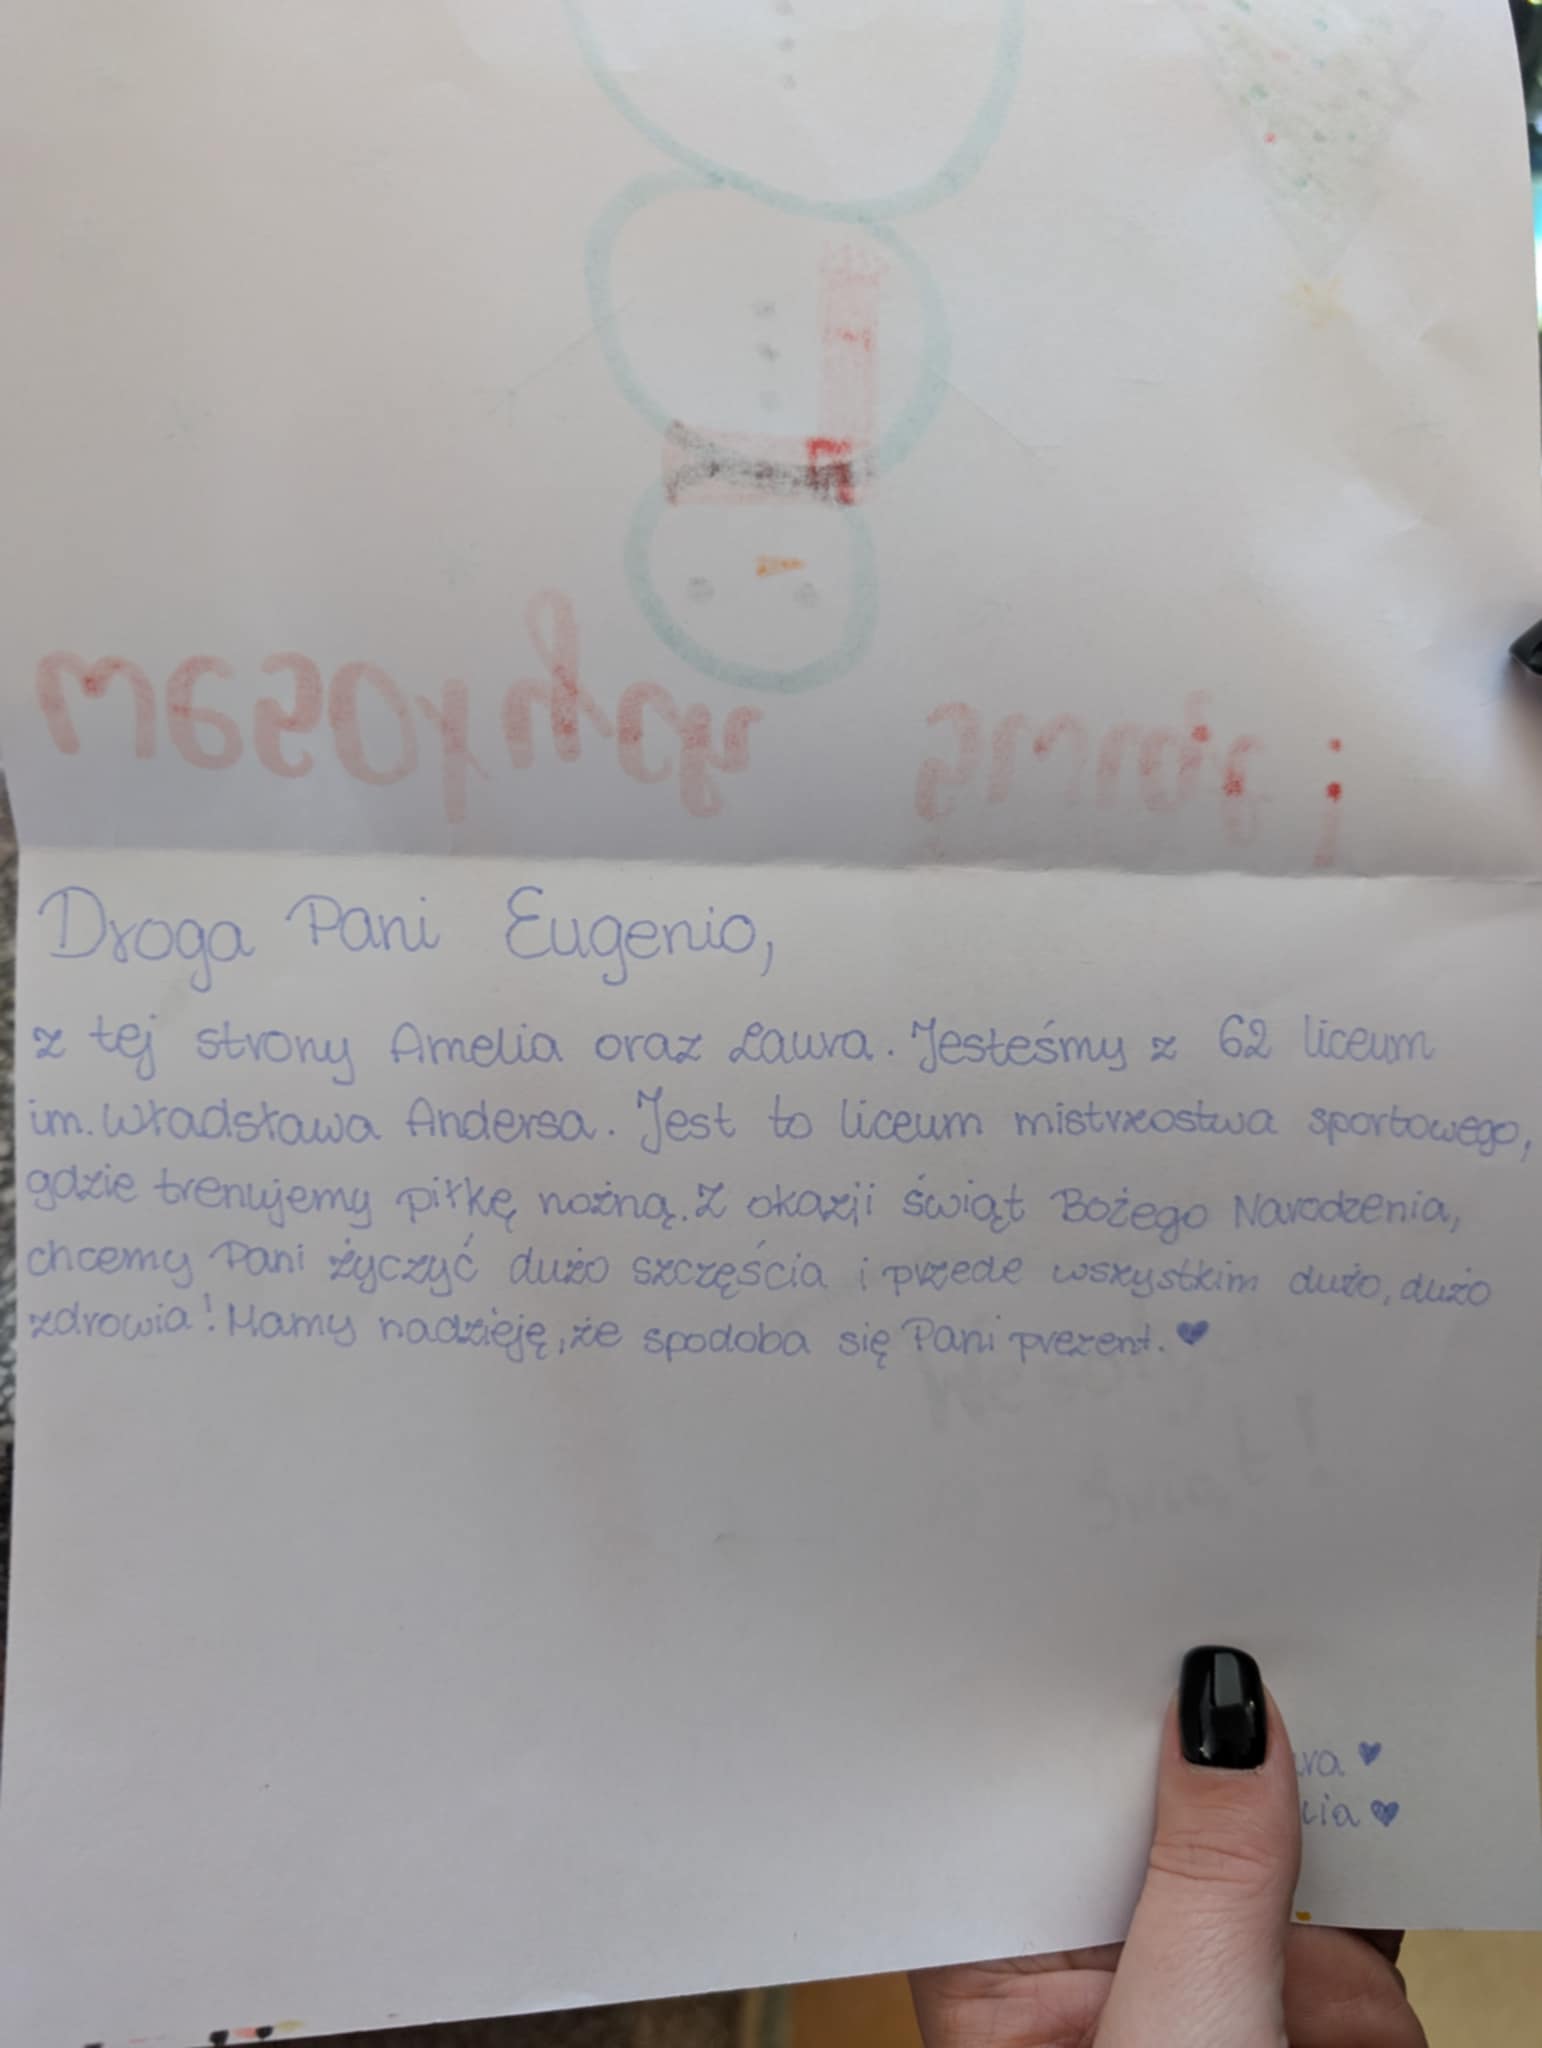 Wesołych świąt!
Droga Pani Eugenio,
z tej strony Amelia oraz Laura. Jesteśmy z 62 liceum
im. Władsława Andersa. Jest to liceum mistrzostwa sportowego,
gdzie trenujemy piłkę nożną. Z okazji świąt Bożego Narodzenia,
chcemy Pani życzyć dużo szczęścia i przede wszystkim dużo, dużo
zdrowia! Mamy nadzieję, że spodoba się Pani prezent. ♥
ra ♥
lia ♥